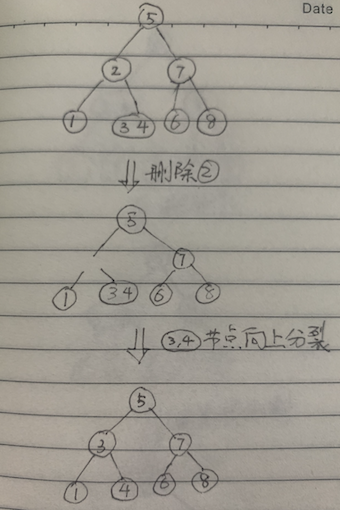 Date
5
2 7
1 3 4 6 8
删除②
5
7
1 3 4 6 8
3,4 节点向上分裂
5
3 7
1 4 6 8